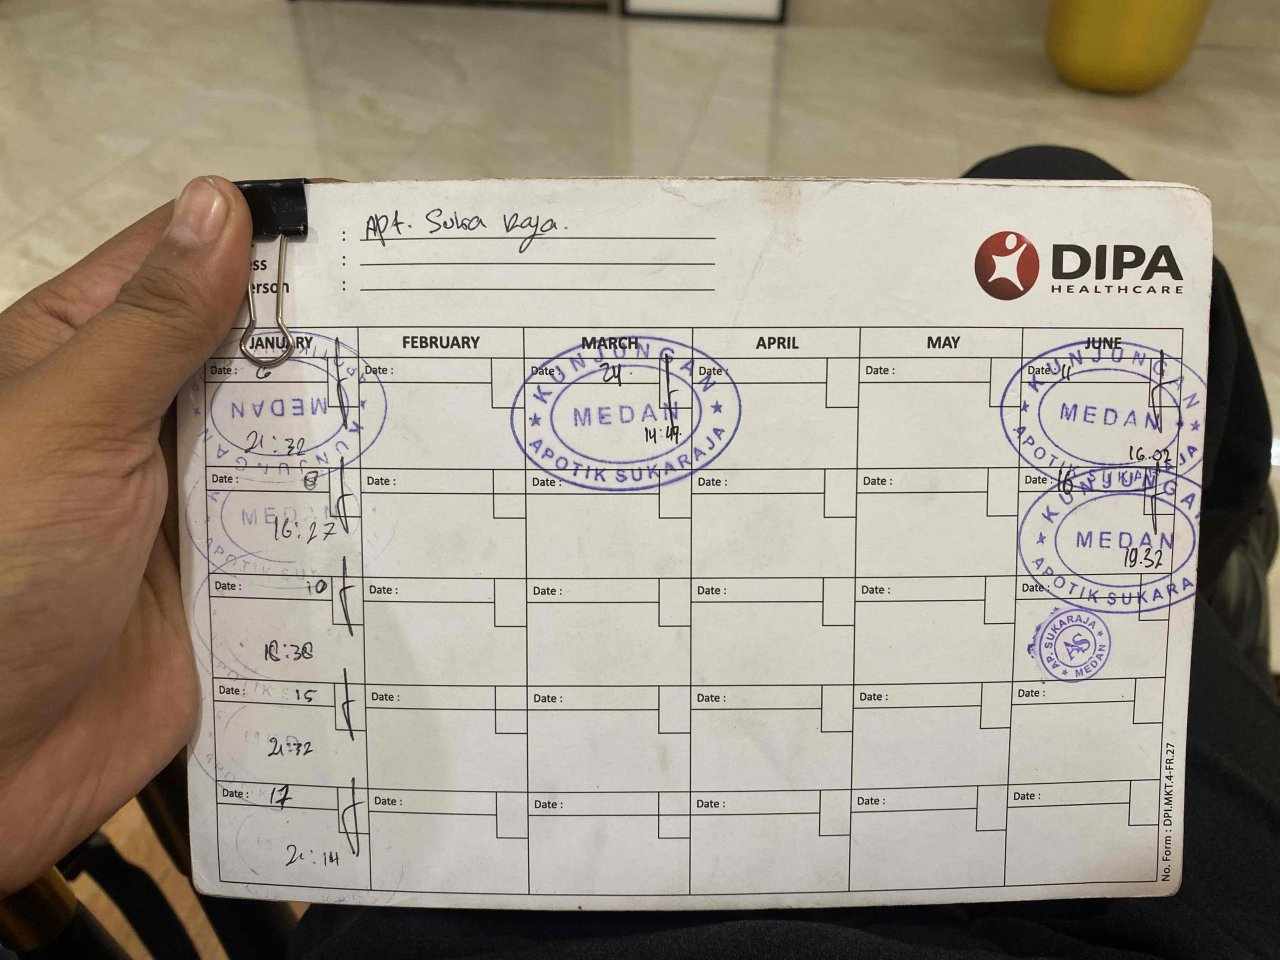 : Apt. Suka Raja.
ess :
erson :
DIPA
HEALTHCARE
JANUARY FEBRUARY MARCH APRIL MAY JUNE
Date : 6 Date : Date : 24 Date : Date : Date : 11
MEDAN
21:32
KUNJUNGAN
MEDAN
14:47
APOTIK SUKARAJA
KUNJUNGAN
MEDAN
16.02
Date : 8 Date : Date : Date : Date : Date : 16
MEDAN
16:27
KUNJUNGAN
MEDAN
19.32
APOTIK SUKARA
Date : 10 Date : Date : Date : Date : Date :
18:38
AP. SUKARAJA
AS
MEDAN
Date : 15 Date : Date : Date : Date : Date :
21:32
Date : 17 Date : Date : Date : Date : Date :
21:14
No. Form : DPI.MKT.4-FR.27